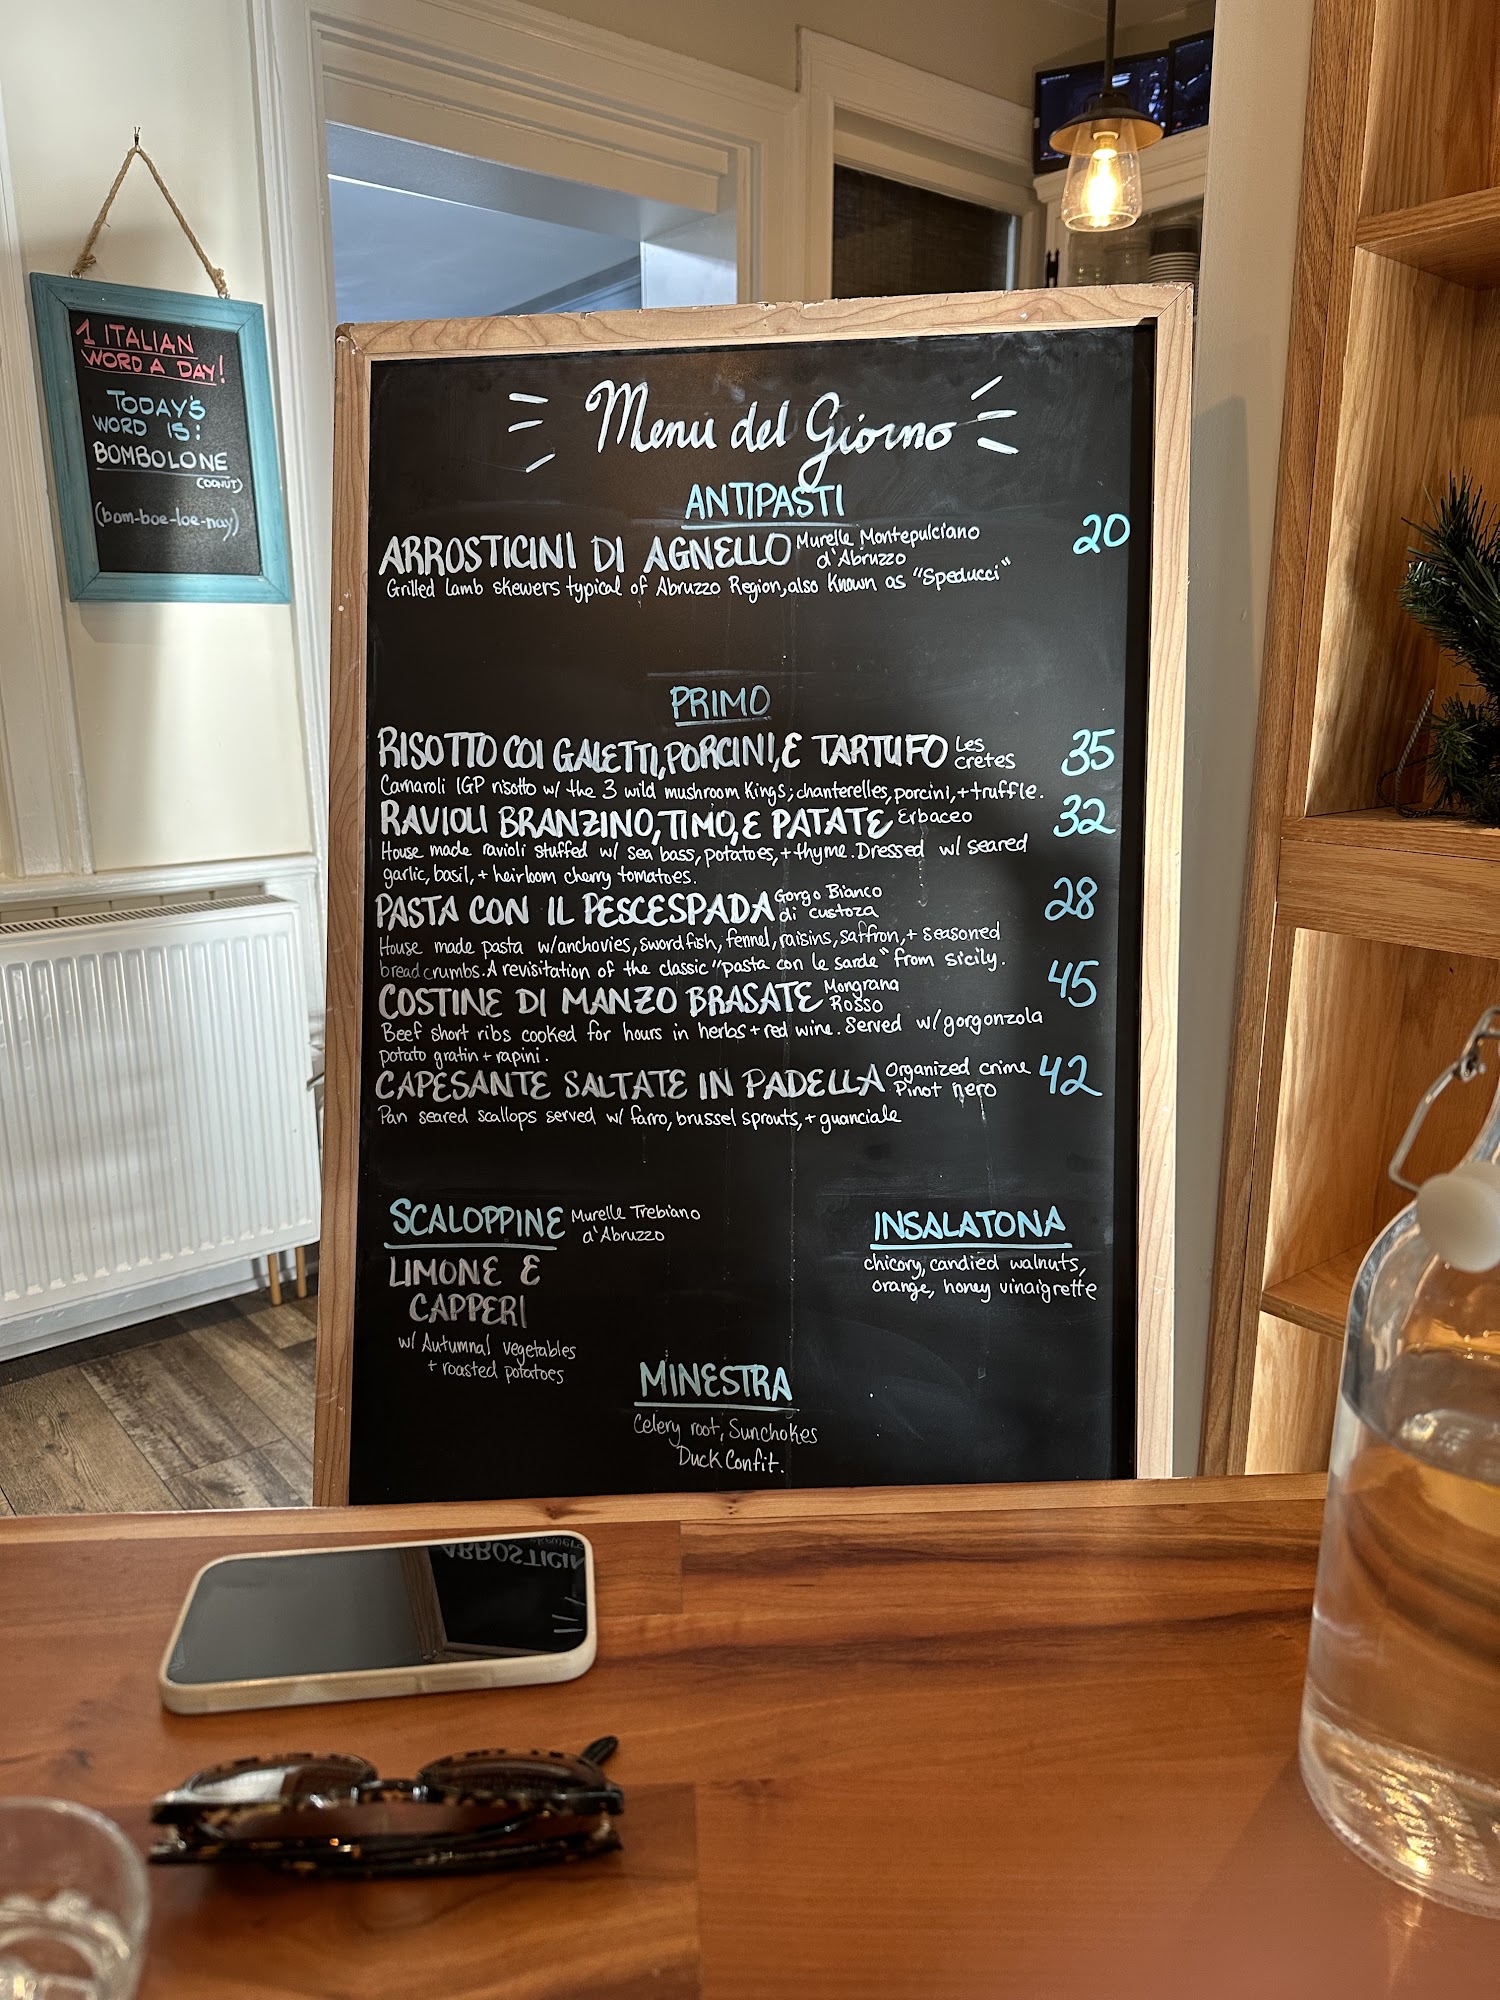 1 ITALIAN
WORD A DAY!
TODAY'S
WORD IS:
BOMBOLONE
(DONUT)
(bom-boe-loe-nay)
Menu del Giorno
ANTIPASTI
ARROSTICINI DI AGNELLO Murelle Montepulciano 20
d'Abruzzo
Grilled Lamb skewers typical of Abruzzo Region, also known as "Speducci"
PRIMO
RISOTTO COI GALETTI, PORCINI, E TARTUFO Les 35
cretes
Carnaroli IGP risotto w/ the 3 wild mushroom Kings; chanterelles, porcini, + truffle.
RAVIOLI BRANZINO, TIMO, E PATATE Erbaceo 32
House made ravioli stuffed w/ sea bass, potatoes, + thyme. Dressed w/ seared
garlic, basil, + heirloom cherry tomatoes.
PASTA CON IL PESCESPADA Gorgo Bianco 28
di custoza
House made pasta w/anchovies, swordfish, fennel, raisins, saffron, + seasoned
breadcrumbs. A revisitation of the classic "pasta con le sarde" from Sicily.
COSTINE DI MANZO BRASATE Mongrana 45
Rosso
Beef short ribs cooked for hours in herbs + red wine. Served w/ gorgonzola
potato gratin + rapini.
CAPESANTE SALTATE IN PADELLA Organized crime 42
Pinot nero
Pan seared scallops served w/ farro, brussel sprouts, + guanciale
SCALOPPINE Murelle Trebiano
d'Abruzzo
LIMONE E
CAPPERI
w/ Autumnal vegetables
+ roasted potatoes
INSALATONA
chicory, candied walnuts,
orange, honey vinaigrette
MINESTRA
Celery root, Sunchokes
Duck Confit.